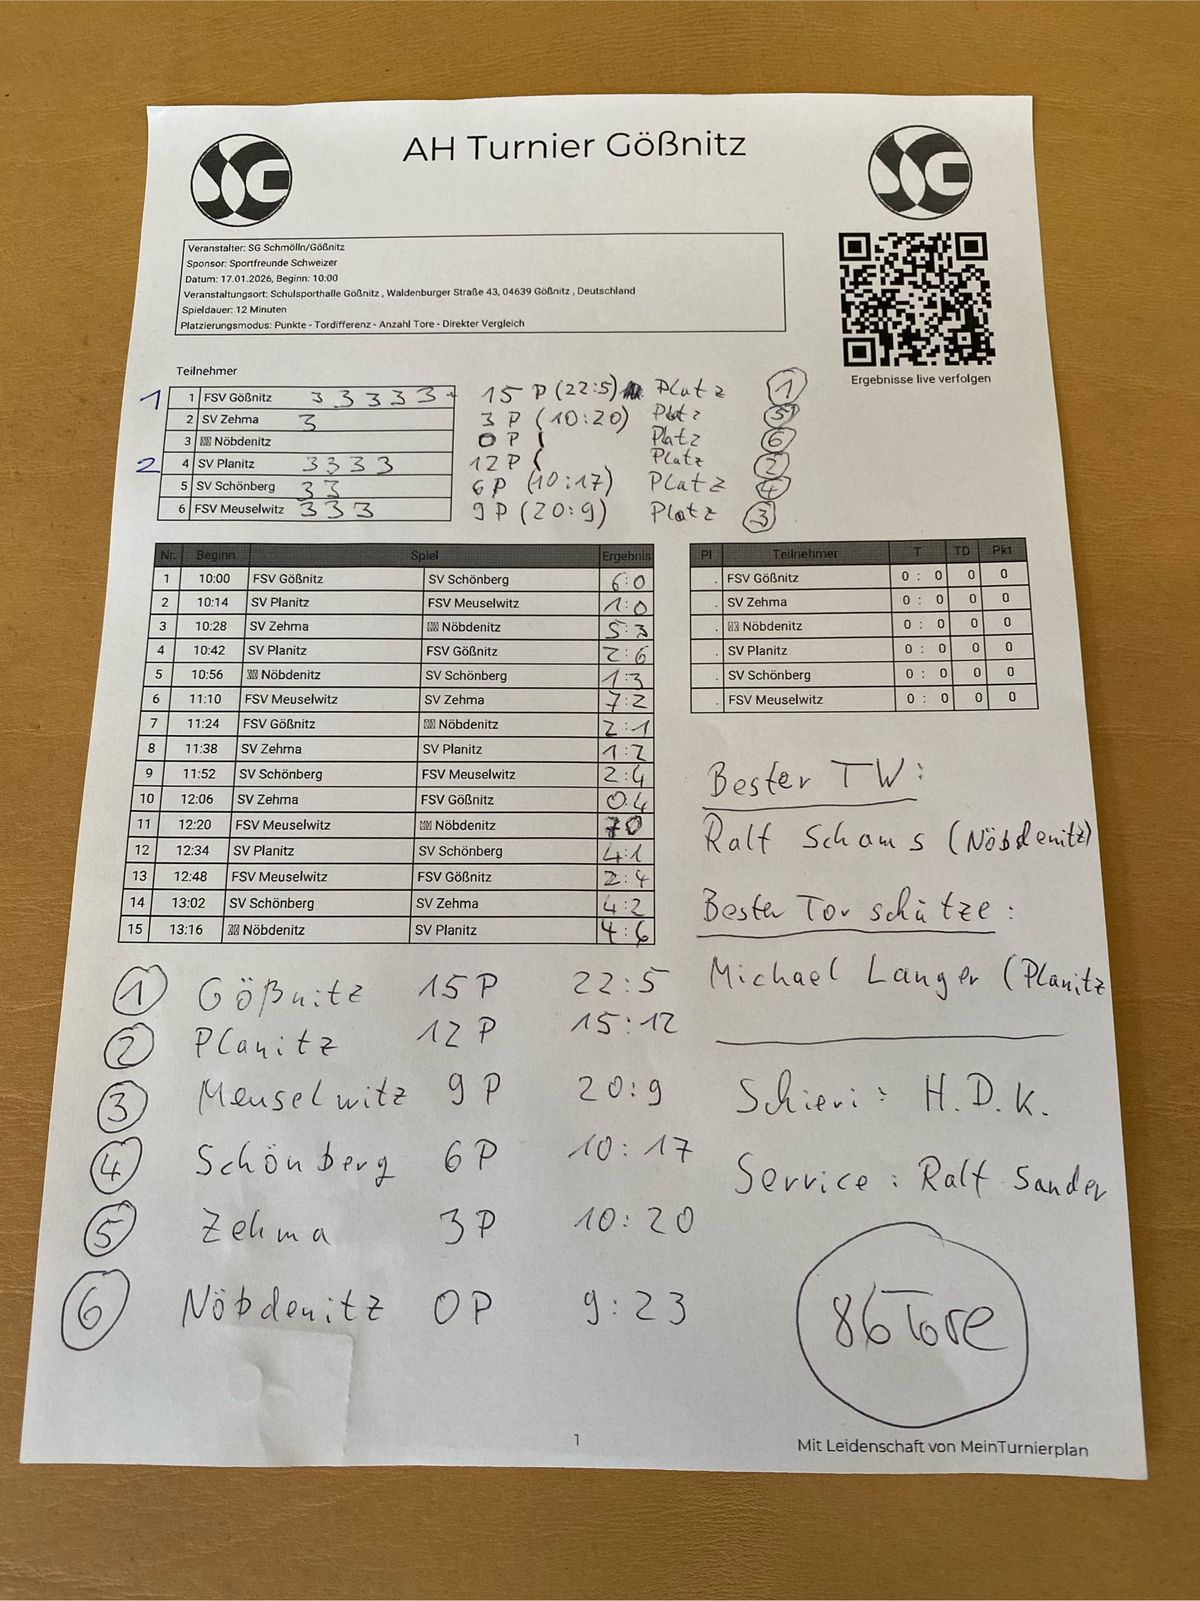 AH Turnier Gößnitz
Veranstalter: SG Schmölln/Gößnitz
Sponsor: Sportfreunde Schweizer
Datum: 17.01.2026, Beginn: 10:00
Veranstaltungsort: Schulsporthalle Gößnitz , Waldenburger Straße 43, 04639 Gößnitz , Deutschland
Spieldauer: 12 Minuten
Platzierungsmodus: Punkte - Tordifferenz - Anzahl Tore - Direkter Vergleich
Ergebnisse live verfolgen
Teilnehmer
1 1 FSV Gößnitz 3 3 3 3 3 15 P (22:5) Platz 1
2 SV Zehma 3 3 P (10:20) Platz 5
3 Nöbdenitz 0 P ( Platz 6
2 4 SV Planitz 3 3 3 3 12 P ( Platz 2
5 SV Schönberg 3 3 6 P (10:17) Platz 4
6 FSV Meuselwitz 3 3 3 9 P (20:9) Platz 3
Nr. Beginn Spiel Ergebnis
1 10:00 FSV Gößnitz SV Schönberg 6:0
2 10:14 SV Planitz FSV Meuselwitz 1:0
3 10:28 SV Zehma Nöbdenitz 5:3
4 10:42 SV Planitz FSV Gößnitz 2:6
5 10:56 Nöbdenitz SV Schönberg 1:3
6 11:10 FSV Meuselwitz SV Zehma 7:2
7 11:24 FSV Gößnitz Nöbdenitz 2:1
8 11:38 SV Zehma SV Planitz 1:2
9 11:52 SV Schönberg FSV Meuselwitz 2:4
10 12:06 SV Zehma FSV Gößnitz 0:4
11 12:20 FSV Meuselwitz Nöbdenitz 7 0
12 12:34 SV Planitz SV Schönberg 4:1
13 12:48 FSV Meuselwitz FSV Gößnitz 2:4
14 13:02 SV Schönberg SV Zehma 4:2
15 13:16 Nöbdenitz SV Planitz 4:6
Pl Teilnehmer T TD Pkt
. FSV Gößnitz 0 : 0 0 0
. SV Zehma 0 : 0 0 0
. Nöbdenitz 0 : 0 0 0
. SV Planitz 0 : 0 0 0
. SV Schönberg 0 : 0 0 0
. FSV Meuselwitz 0 : 0 0 0
Bester TW:
Ralf Schams (Nöbdenitz)
Bester Torschütze:
Michael Langer (Planitz
1 Gößnitz 15 P 22:5
2 Planitz 12 P 15:12
3 Meuselwitz 9 P 20:9
4 Schönberg 6 P 10:17
5 Zehma 3 P 10:20
6 Nöbdenitz 0 P 9:23
Schieri: H.D.K.
Service: Ralf Sander
86 Tore
1
Mit Leidenschaft von MeinTurnierplan